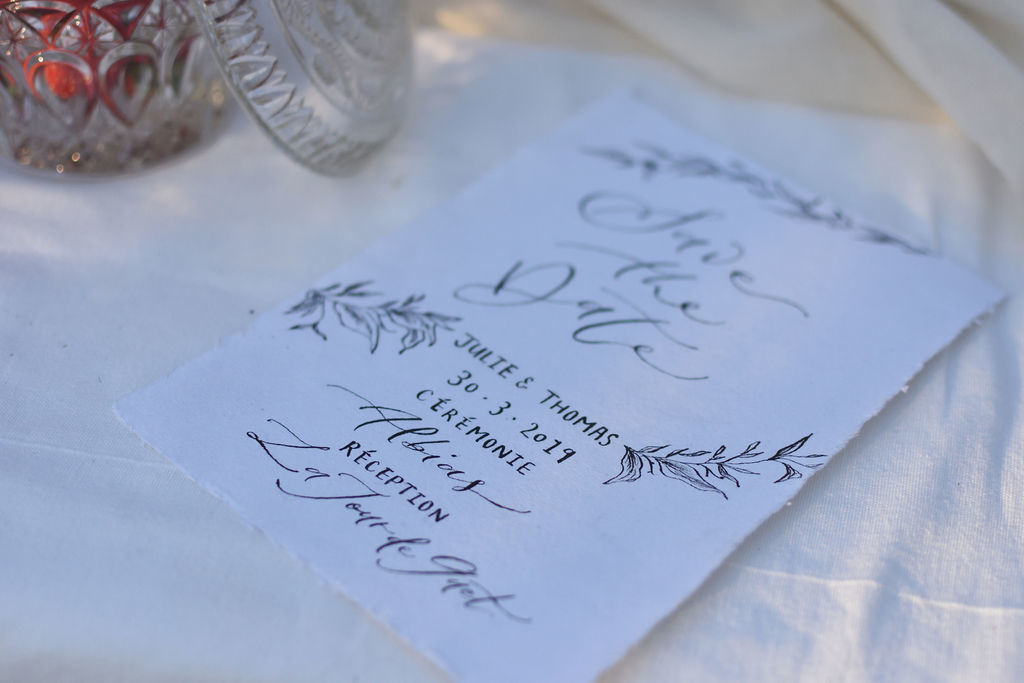 Save
the
Date
JULIE & THOMAS
30.3.2019
CÉRÉMONIE
Albias
RÉCEPTION
La Tour de Gaet